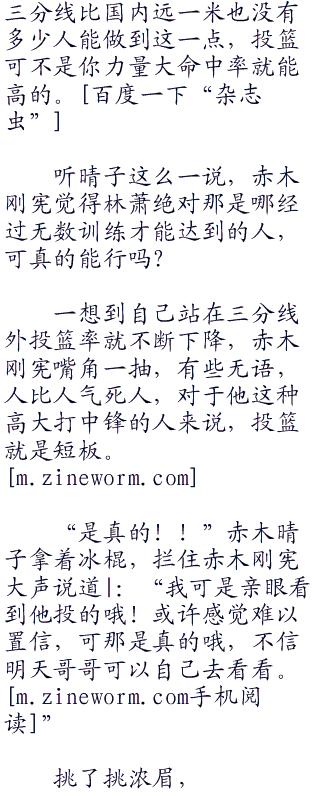 三分线比国内远一米也没有
多少人能做到这一点，投篮
可不是你力量大命中率就能
高的。[百度一下“杂志
虫”]
听晴子这么一说，赤木
刚宪觉得林萧绝对那是哪经
过无数训练才能达到的人，
可真的能行吗？
一想到自己站在三分线
外投篮率就不断下降，赤木
刚宪嘴角一抽，有些无语，
人比人气死人，对于他这种
高大打中锋的人来说，投篮
就是短板。
[m.zineworm.com]
“是真的！！”赤木晴
子拿着冰棍，拦住赤木刚宪
大声说道|：“我可是亲眼看
到他投的哦！或许感觉难以
置信，可那是真的哦，不信
明天哥哥可以自己去看看。
[m.zineworm.com手机阅
读]”
挑了挑浓眉，